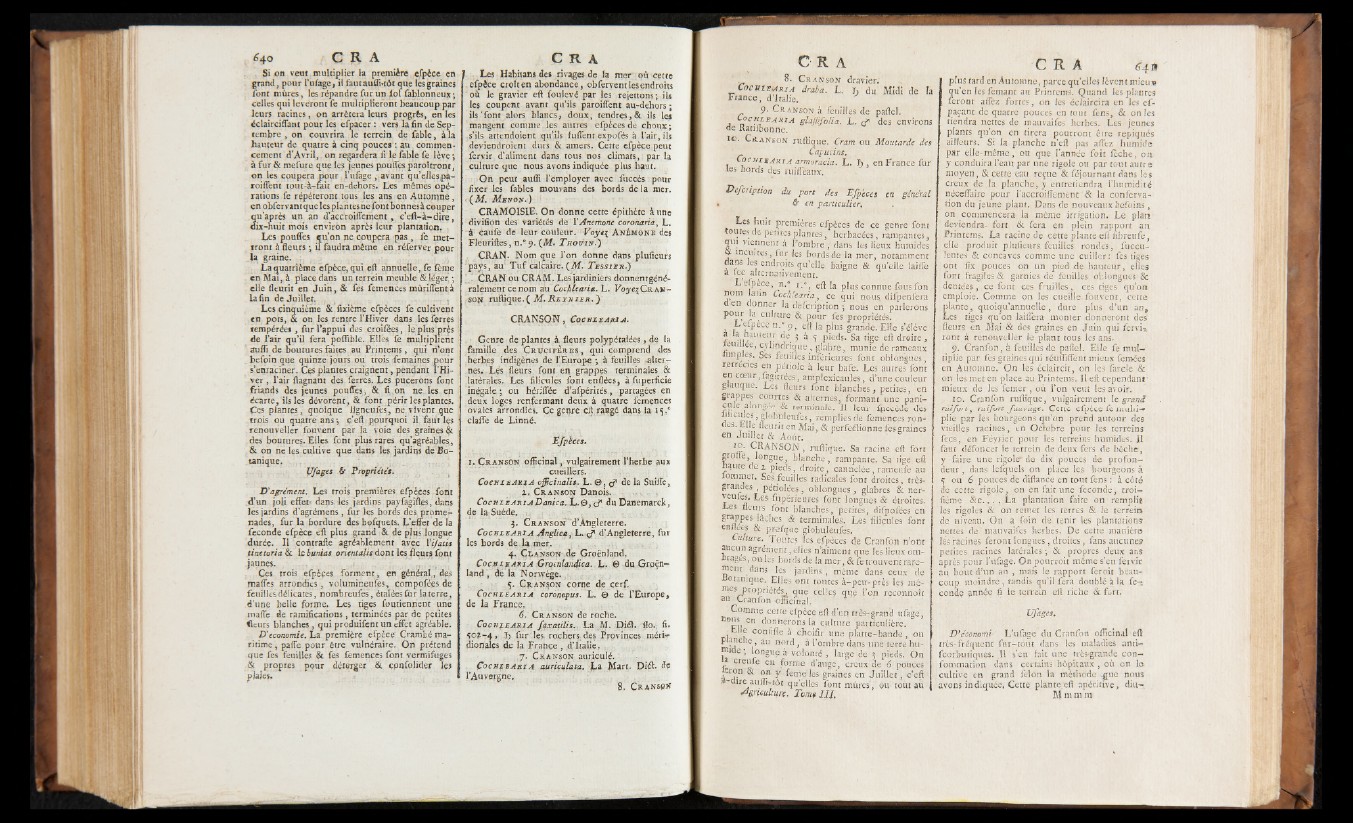 640 C R A
Si on veut multiplier la première eſpèce en
grand, pour l'uſage, il faut auſſi-tôt que les graines
ſont mûres, les répandre ſur un ſol ſablonneux;
celles qui leveront ſe multiplieront beaucoup par
leurs racines, on arrêtera leurs progrès, en les
éclairciſſant pour les eſpacer: vers la fin de Sep-
tembre, on couvrira le terrein de ſable, à la
hauteur de quatre à cinq pouces: au commen-
cement d'Avril, on regardera ſi le ſable ſe lève;
à fur & meſure que les jeunes pouſſes paroîtront,
on les coupera pour l'uſage, avant qu'elles pa-
roiſſent tout-à-fait en-dehors. Les mêmes opé-
rations ſe répéteront tous les ans en Automne,
en obſervant que les plantes ne ſont bonnes à couper
qu'après un an d'accroiſſement, c'eſt-à-dire,
dix-huit mois environ après leur plantation.
Les pouſſes qu'on ne coupera pas, ſe met-
tront à fleurs; il faudra même en réſerver pour
la graine.
La quatrième eſpèce, qui eſt annuelle, ſe ſème
en Mai, à place dans un terrein meuble & léger;
elle fleurit en Juin, & ſes ſemences mûriſſent à
la fin de Juillet.
Les cinquième & ſixième eſpèces ſe cultivent
en pots, & on les rentre l'Hiver dans les ſerres
tempérées, ſur l'appui des croiſées, le plus près
de l'air qu'il ſera poſſible. Elles ſe multiplient
auſſi de boutures faites au Printems, qui n'ont
beſoin que quinze jours ou trois ſemaines pour
s'enraciner. Ces plantes craignent, pendant l'Hi-
ver, l'air ſtagnant des ſerres. Les pucerons ſont
friands des jeunes pouſſes, & ſi on ne les en
écarte, ils les dévorent, & font périr les plantes.
Ces plantes, quoique ligneuſes, ne vivent que
trois ou quatre ans; c'eſt pourquoi il faut les
renouveller ſouvent par la voie des graines &
des boutures. Elles ſont plus rares qu'agréables,
& on ne les cultive que dans les jardins de Bo-
tanique.
Uſages & Propriétés.
D'agrément. Les trois premières eſpèces font
d'un joli effet dans les jardins payſagiſtes, dans
les jardins d'agrémens, ſur les bords des prome-
nades, ſur la bordure des boſquets. L'effet de la
ſeconde eſpèce eſt plus grand & de plus longue
durée. Il contraſte agréablement avec l'iſatis
tinctoria & le bunias orientalis dont les fleurs ſont
jaunes.
Ces trois eſpèces forment, en général, des
maſſes arrondies, volumineuſes, compoſées de
feuilles délicates, nombreuſes, étalées ſur la terre,
d'une belle forme. Les tiges ſoutiennent une
maſſe de ramifications, terminées par de petites
fleurs blanches, qui produiſent un effet agréable.
D'economie. La première eſpèce Crambé ma-
ritime, paſſe pour être vulnéraire. On prétend
que ſes feuilles & ſes ſemences ſont vermifuges
& propres pour déterger & conſolider les
plaies.
C R A
Les Habitans des rivages de la mer où cette
eſpèce croît en abondance, obſervent les endroits
où le gravier eſt ſoulevé par les rejettons; ils
les coupent avant qu'ils paroiſſent au-dehors;
ils ſont alors blancs, doux, tendres, & ils les
mangent comme les autres eſpèces de choux;
s'ils attendoient qu'ils fuſſent expoſés à l'air, ils
deviendroient durs & amers. Cette eſpèce peut
ſervir d'aliment dans tous nos climats, par la
culture que nous avons indiquée plus haut.
On peut auſſi l'employer avec ſuccès pour
fixer les ſables mouvans des bords de la mer.
(M. Menon.)
CRAMOISIE. On donne cette épithète à une
diviſion des variétés de l'Anemone coronaria, L.
à cauſe de leur couleur. Voyez Anémone des
Fleuriſtes, n.° 9. (M. Thouin.)
CRAN. Nom que l'on donne dans pluſieurs
pays, au Tuf calcaire. (M. Tessier.)
CRAN ou CRAM. Les jardiniers donnent géné-
ralement ce nom au Cochlearia. L. Voyez Cran-
son ruſtique. (M. Reynier.)
CRANSON, Cochlearia.
Genre de plantes à fleurs polypétalées, de la
famille des Crucifères, qui comprend des
herbes indigènes de l'Europe; à feuilles alter-
nes. Les fleurs ſont en grappes terminales &
latérales. Les ſilicules ſont enflées, à ſuperficie
inégale; ou hériſſée d'aſpérités, partagées en
deux loges renfermant deux à quatre ſemences
ovales arrondies. Ce genre eſt rangé dans la 15.e
claſſe de Linné.
Eſpèces.
1. Cranson officinal, vulgairement l'herbe aux
cueillers.
Cochlearia officinalis. L. ☉, ♂ de la Suiſſe,
2. Cranson Danois.
Cochlearia Danica. L. ☉, ♂ du Danemarck,
de la Suède.
3. Cranson d'Angleterre.
Cochlearia Anglica, L. ♂ d'Angleterre, ſur
les bords de la mer.
4. Clanson de Groënland.
Cochlearia Groënlandica. L. ☉ du Groën-
land, de la Norwège.
5. Cranson corne de cerf.
Cochlearia coronopus. L. ☉ de l'Europe,
de la France.
6. Cranson de roche.
Cochlearia ſaxatilis. La M. Dict. flo. fr.
502-4, ♄ ſur les rochers des Provinces méri-
dionales de la France, d'Italie.
7. Cranson auriculé.
Cochlearia auriculata. La Mart. Dict. de
l'Auvergne.
8. Cranson
C R A
8. Cranson dravier.
Cochlearia draba. L. ♄ du Midi de la
France, d'Italie.
9. Cranson à feuilles de paſtel.
Cochlearia glaſtifolia. L. ♂ des environs
de Ratiſbonne.
10. Cranson ruſtique. Cram ou Moutarde des
Capucins.
Cochlearia armoracia. L. ♄, en France ſur
les bords des ruiſſeaux.
Deſcription du port des Eſpèces en général
& en particulier.
Les huit premières eſpèces de ce genre ſont
toutes de petites plantes, herbacées, rampantes,
qui viennent à l'ombre, dans les lieux humides
& incultes, ſur les bords de la mer, notamment
dans les endroits qu'elle baigne & qu'elle laiſſe
à ſec alternativement.
L'eſpèce, n.° 1.°, eſt la plus connue ſous ſon
nom latin Cochlearia, ce qui nous diſpenſera
d'en donner la deſcription; nous en parlerons
pour la culture & pour ſes propriétés.
L'eſpèce n.° 9, eſt la plus grande. Elle s'élève
à la hauteur de 3 à 5 pieds. Sa tige eſt droite,
feuillée, cylindrique, glabre, munie de rameaux
ſimples. Ses feuilles inférieures ſont oblongues,
rétrécies en pétiole à leur baſe. Les autres ſont
en cœur, ſagittées, amplexicaules, d'une couleur
glauque. Les fleurs ſont blanches, petites, en
grappes courtes & alternes, formant une pani-
cule alongée & terminale. Il leur ſuccède des
ſilicules, globuleuſes, remplies de ſemences ron-
des. Elle fleurit en Mai, & perfectionne ſes graines
en Juillet & Août.
10. CRANSON, ruſtique. Sa racine eſt fort
groſſe, longue, blanche, rampante. Sa tige eſt
haute de 2 pieds, droite, cannelée, rameuſe au
ſommet. Ses feuilles radicales ſont droites, très-
grandes, pétiolées, oblongues, glabres & ner-
veuſes. Les ſupérieures ſont longues & étroites.
Les fleurs ſont blanches, petites, diſpoſées en
grappes lâches & terminales. Les ſilicules ſont
enflées & preſque globuleuſes.
Culture. Toutes les eſpèces de Cranſon n'ont
aucun agrément, elles n'aiment que les lieux om-
bragés, ou les bords de la mer, & ſe trouvent rare-
ment dans les jardins, même dans ceux de
Botanique. Elles ont toutes à-peu-près les mê-
mes propriétés, que celles que l'on reconnoît
au Cranſon officinal.
Comme cette eſpèce eſt d'un très-grand uſage,
nous en donnerons la culture particulière.
Elle conſiſte à choiſir une platte-bande, ou
planche, au nord, à l'ombre dans une terre hu-
mide; longue à volonté, large de 3 pieds. On
la creuſe en forme d'auge, creux de 6 pouces
environ & on y ſème les graines en Juillet, c'eſt
à-dire auſſi-tôt qu'elles ſont mûres, ou tout au
Agriculture. Tome III.
C R A 641
plus tard en Automne, parce qu'elles lèvent mieux
qu'en les ſemant au Printems. Quand les plantes
ſeront aſſez fortes, on les éclaircira en les eſ-
paçant de quatre pouces en tout ſens, & on les
tiendra nettes de mauvaiſes herbes. Les jeunes
plants qu'on en tirera pourront être repiqués
ailleurs. Si la planche n'eſt pas aſſez humide
par elle-même, ou que l'année ſoit ſèche, on
y conduira l'eau par une rigole ou par tout autre
moyen, & cette eau reçue & ſéjournant dans les
creux de la planche, y entretiendra l'humidité
néceſſaire pour l'accroiſſement & la conſerva-
tion du jeune plant. Dans de nouveaux beſoins,
on commencera la même irrigation. Le plan
deviendra fort & ſera en plein rapport au
Printems. La racine de cette plante eſt fibreuſe,
elle produit pluſieurs feuilles rondes, ſuccu-
lentes & concaves comme une cuiller: ſes tiges
ont ſix pouces ou un pied de hauteur, elles
ſont fragiles & garnies de feuilles oblongues &
dentées, ce ſont ces feuilles, ces tiges qu'on
emploie. Comme on les cueille ſouvent, cette
plante, quoiqu'annuelle, dure plus d'un an,
Les tiges qu'on laiſſera monter donneront des
fleurs en Mai & des graines en Juin qui ſervi-
ront à renouveller le plant tous les ans.
9. Cranſon, à feuilles de paſtel. Elle ſe mul-
tiplie par ſes graines qui réuſſiſſent mieux ſemées
en Automne. On les éclaircit, on les ſarcle &
on les met en place au Printems. Il eſt cependant
mieux de les ſemer, où l'on veut les avoir.
10. Cranſon ruſtique, vulgairement le grand
raifort, raifort ſauvage. Cette eſpèce ſe multi-
plie par les bourgeons qu'on prend autour des
vieilles racines, en Octobre pour les terreins
ſecs, en Février pour les terreins humides. Il
faut défoncer le terrein de deux fers de bêche,
y faire une rigole de dix pouces de profon-
deur, dans leſquels on place les bourgeons à
5 ou 6 pouces de diſtance en tout ſens: à côté
de cette rigole, on en fait une ſeconde, troi-
ſième &c.... La plantation faite on remplit
les rigoles & on remet les terres & le terrein
de niveau. On a ſoin de tenir les plantations
nettes de mauvaiſes herbes. De cette manière
les racines ſeront longues, droites, ſans aucunes
petites racines latérales; & propres deux ans
après pour l'uſage. On pourroit même s'en ſervir
au bout d'un an, mais le rapport ſeroit beau-
coup moindre, tandis qu'il ſera doublé à la ſe-
conde année ſi le terrein eſt riche & fort.
Uſages.
D'économi L'uſage du Cranſon officinal eſt
très-fréquent ſur-tout dans les maladies anti-
ſcorbutiques. Il s'en fait une très-grande con-
ſommation dans certains hôpitaux, où on le
cultive en grand ſelon la méthode que nous
avons indiquée. Cette plante eſt apéritive, diu-
M m m m